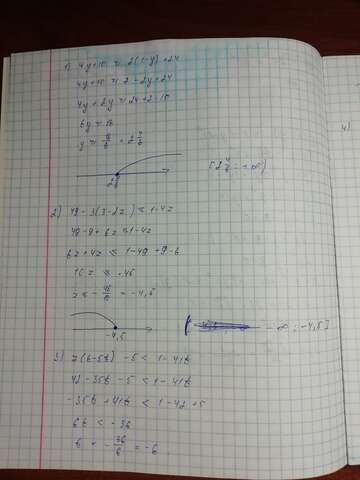 1) 4y+10 ≥ 2(1-y)+24
4y+10 ≥ 2-2y+24
4y+2y ≥ 24+2-10
6y ≥ 16
[2 4/6 ; +∞)
2 4/6
2) 49-3(3-2z) ≤ 1-4z
49-9+6z ≤ 1-4z
6z+4z ≤ 1-49+9-6
10z ≤ -46
z ≤ -46/10 = -4,6
-4,5
-∞ ; -4,5]
3) 7(6-5t) -5 < 1-41t
42-35t-5 < 1-41t
-35t+41t < 1-42+5
6t < -36
t < -36/6 = -6
4)